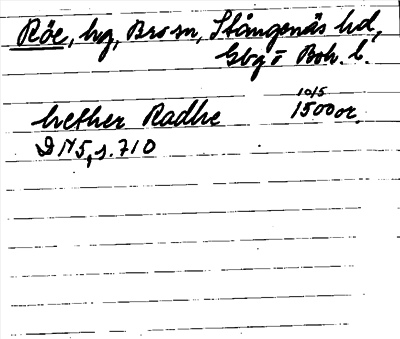 Röe, hg, Bro sn, Stångenäs hd,
Gbg o Boh. l.
1015
hether Radhe 1500 or.
DN5, s. 710